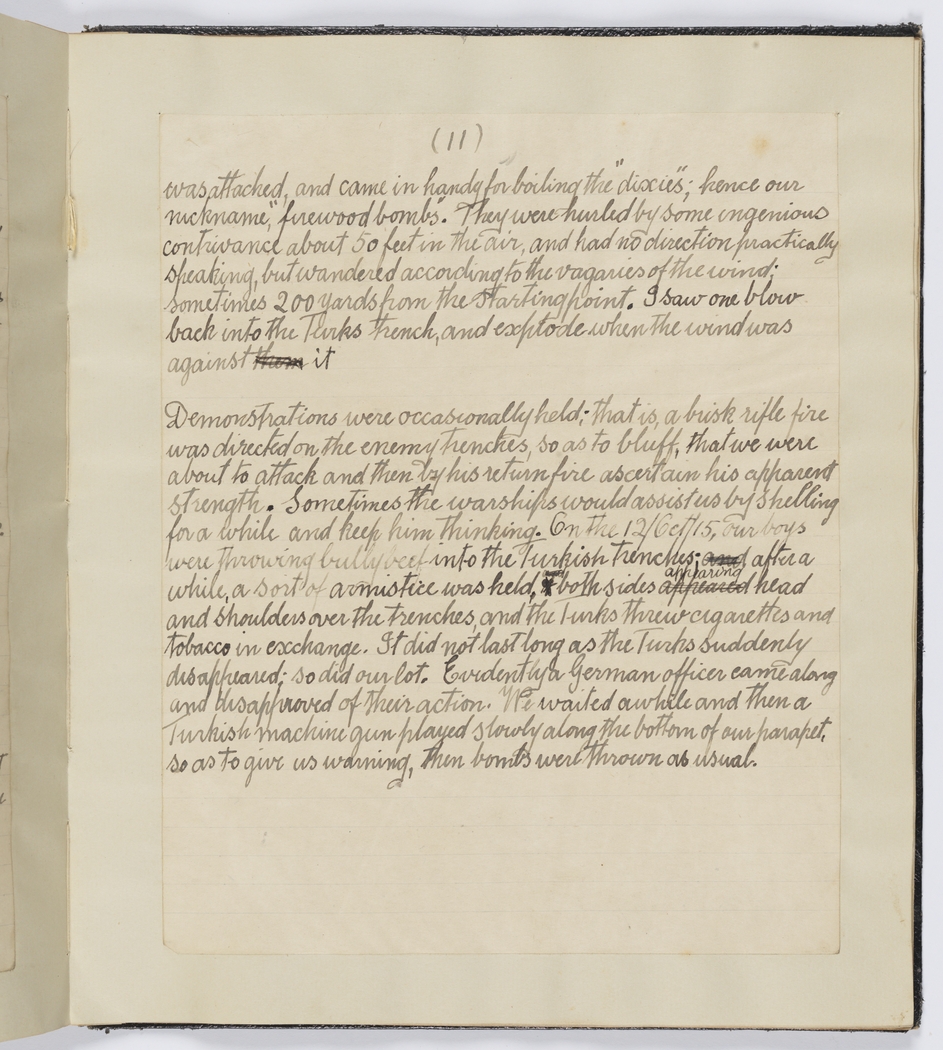 (11)
was attached, and came in handy for boiling the "dixies"; hence our
nickname, "firewood bombs". They were hurled by some ingenious
contrivance about 50 feet in the air, and had no direction practically
speaking, but wandered according to the vagaries of the wind;
sometimes 200 yards from the starting point. I saw one blow
back into the Turks trench, and explode when the wind was
against them it
Demonstrations were occasionally held; that is, a brisk rifle fire
was directed on the enemy trenches, so as to bluff, that we were
about to attack and then by his return fire ascertain his apparent
strength. Sometimes the warships would assist us by shelling
for a while and keep him thinking. On the 12/Oct/15, our boys
were throwing bully beef into the Turkish trenches; and after a
while, a sort of armistice was held, both sides appeared appearing head
and shoulders over the trenches, and the Turks threw cigarettes and
tobacco in exchange. It did not last long as the Turks suddenly
disappeared; so did our lot. Evidently a German officer came along
and disapproved of their action. We waited awhile and then a
Turkish machine gun played slowly along the bottom of our parapet,
so as to give us warning, then bombs were thrown as usual.